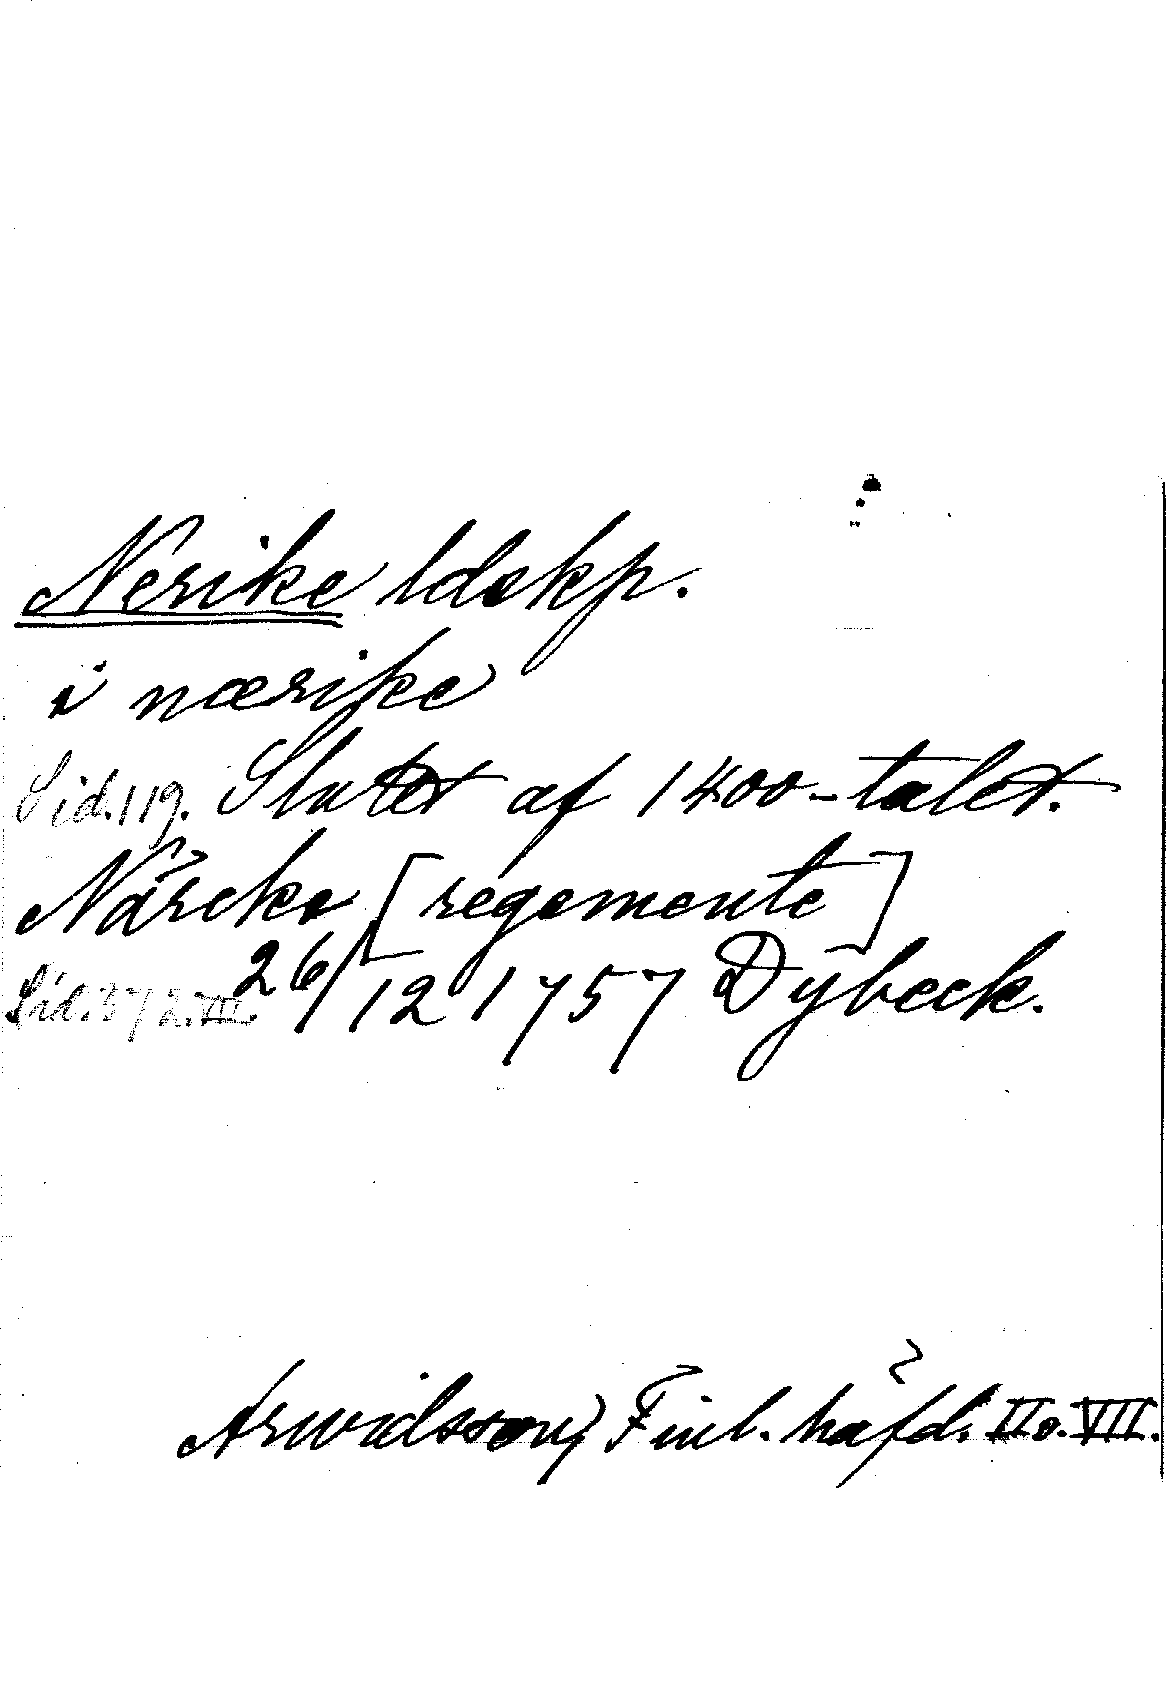 Nerike ldskp.
i nærike
Sid. 119. Slutet af 1400-talet.
Närcke [regemente]
Sid. 372. VII. 26/12 1757 Dybeck.
Arwidsson, Finl. häfd. II o. VII.